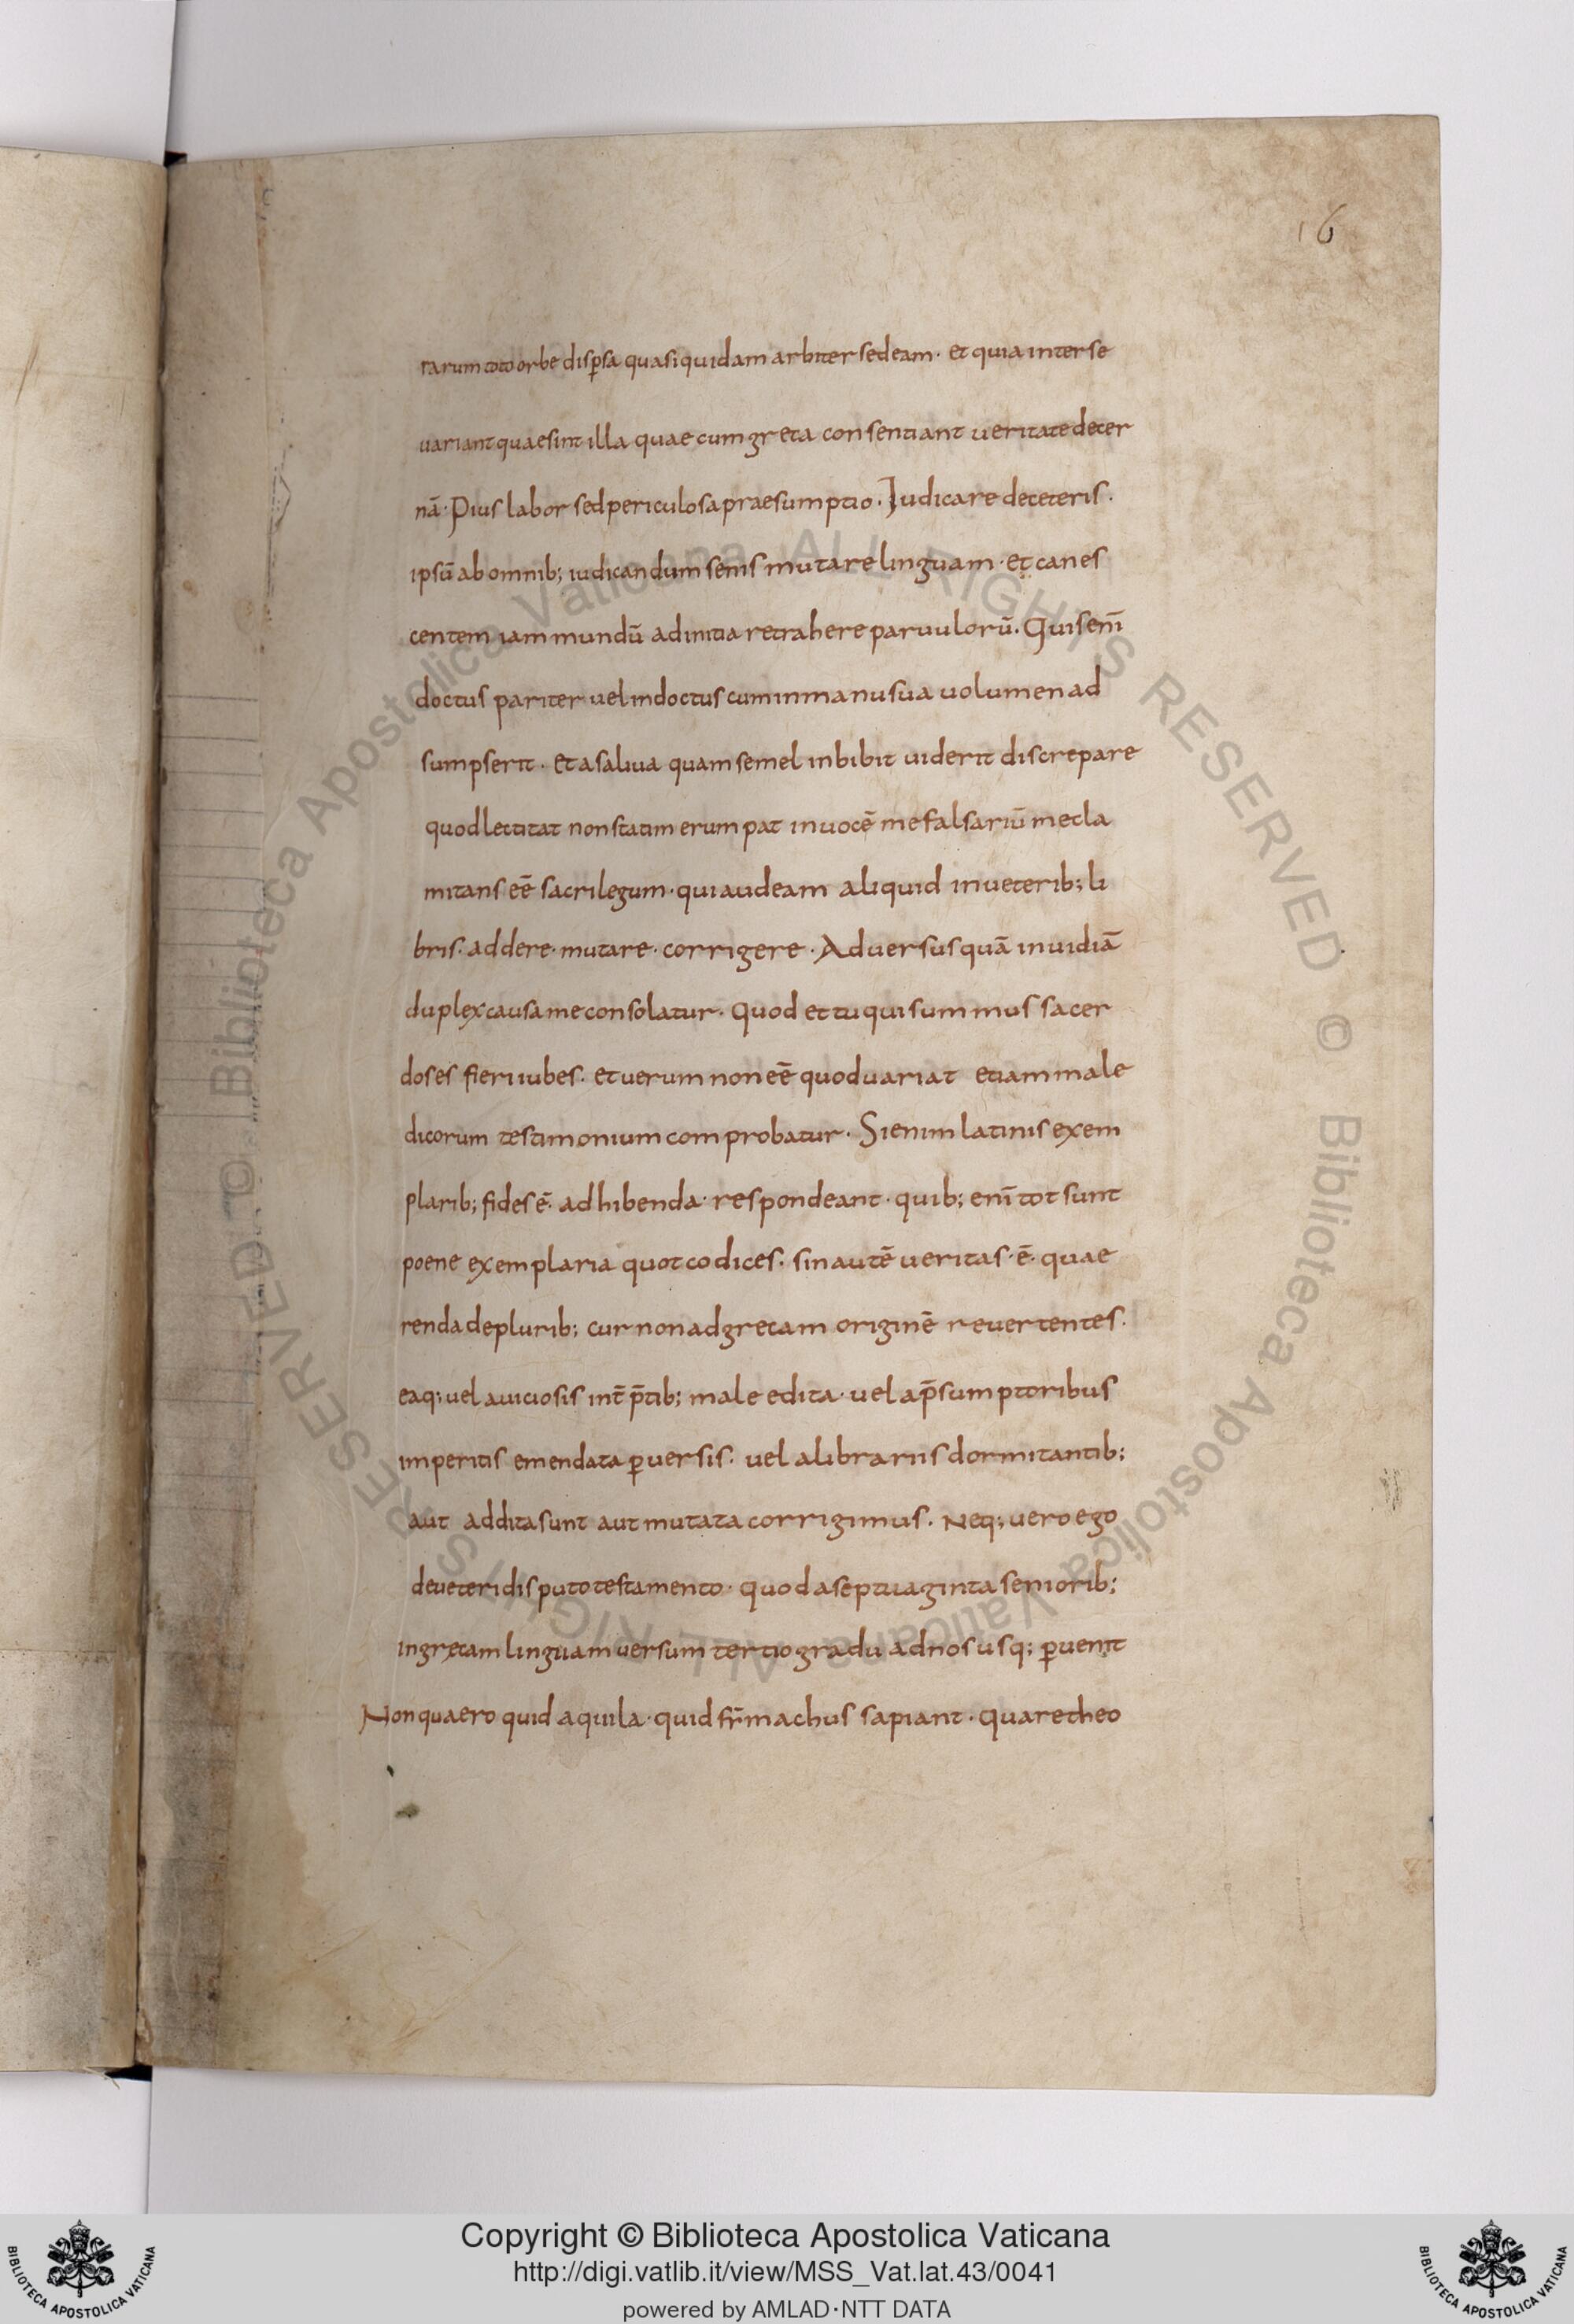 16
rarum toto orbe disp̱sa quasi quidam arbiter sedeam · et quia inter se
uariant quae sint illa quae cum greta consentiant ueritate decer
nā · Pius labor sed periculosa praesumptio · Iudicare deceteris ·
ipsū ab omnib; iudicandum senis mutare linguam · et canes
centem iam mundū ad initia retrahere paruulorū . Quis enī
doctus pariter uel indoctus cum in manu sua uolumen ad
sumpserit · et a saliua quam semel inbibit uiderit discrepare
quod lectitat non statim erumpat in uocē me falsariū me cla
mitans eē sacrilegum · qui audeam aliquid in ueterib; li
bris · addere · mutare · corrigere · Aduersus quā inuidiā
duplex causa me consolatur · quod et tu qui summus sacer
doses fieri iubes · et uerum non eē quod uariat etiam male
dicorum testimonium comprobatur · Si enim latinis exem
plarib; fides ē · adhibenda · respondeant · quib; enī tot sunt
poene exemplaria quot codices · sin autē ueritas · ē · quae
renda de plurib; cur non ad grecam originē reuertentes ·
eaq; uel a uiciosis int̄ p̄tib; male edita · uel a p̄sumptoribus
imperitis emendata ꝑuersis · uel a librariis dormitantib;
aut addita sunt aut mutata corrigimus . Neq; uero ego
de ueteri disputo testamento · quod a septuaginta seniorib;
in grecam linguam uersum tertio gradu ad nos usq; ꝑuenit
Non quaero quid aquila · quid sȳmachus sapiant · quare theo
Copyright © Biblioteca Apostolica Vaticana
http://digi.vatlib.it/view/MSS_Vat.lat.43/0041
powered by AMLAD·NTT DATA
BIBLIOTECA APOSTOLICA VATICANA
BIBLIOTECA APOSTOLICA VATICANA
© Biblioteca Apostolica Vaticana ALL RIGHTS RESERVED © Biblioteca Apostolica Vaticana ALL RIGHTS RESERVED